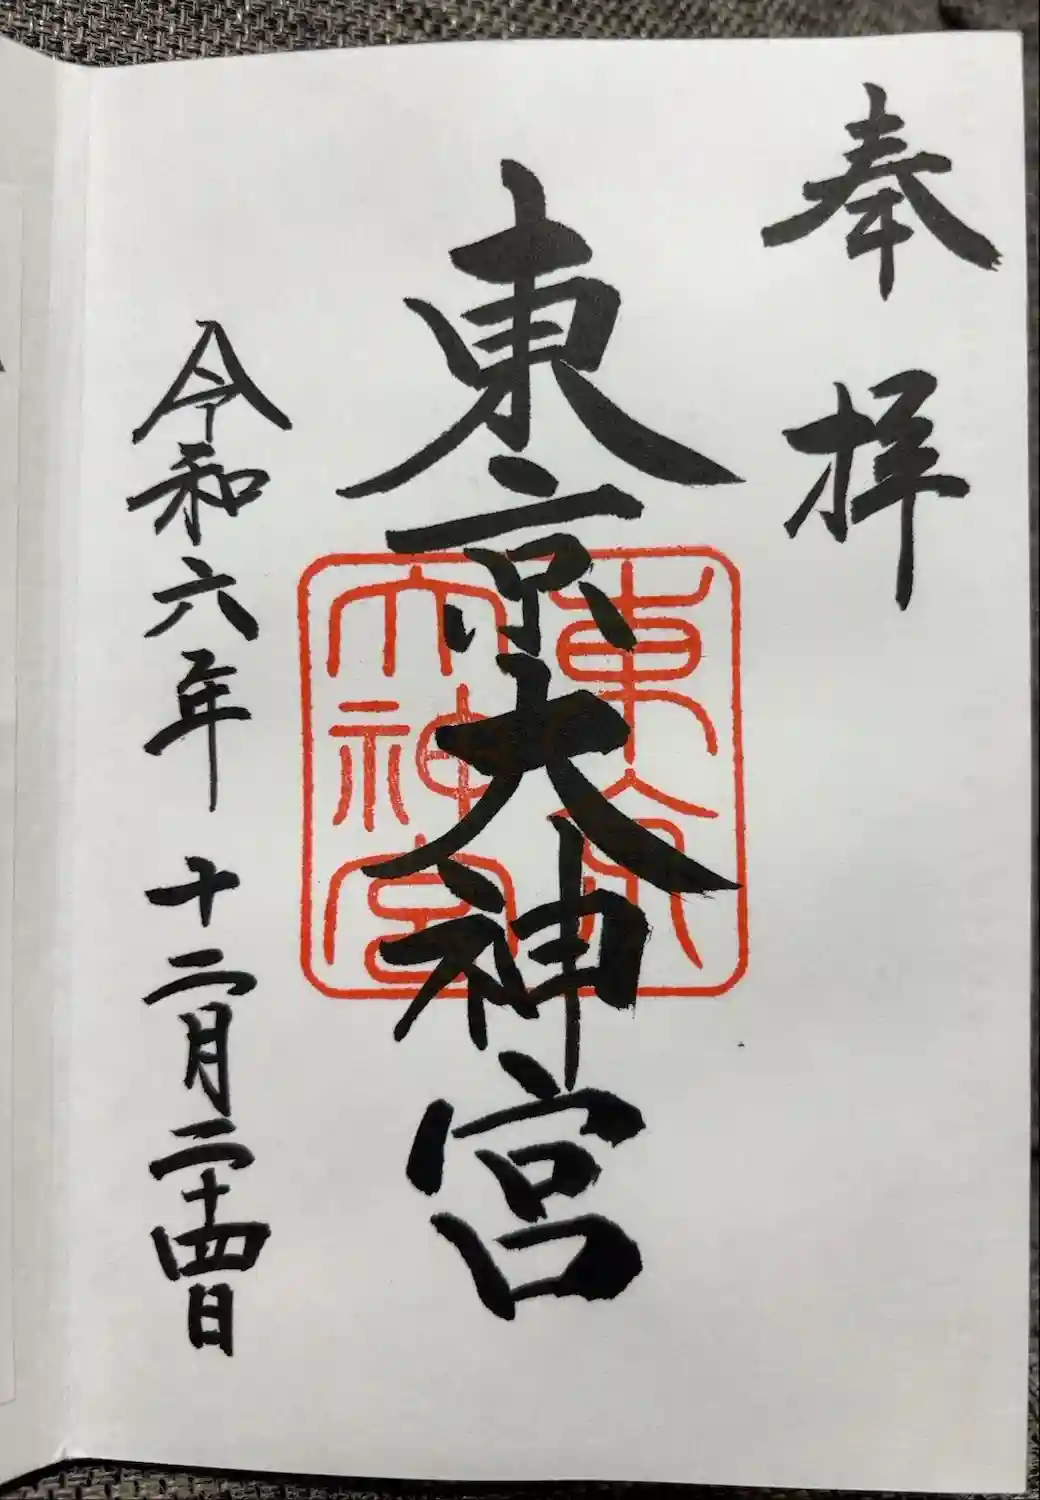 奉拝
東京大神宮
東京
大神宮
令和六年 十二月二十四日